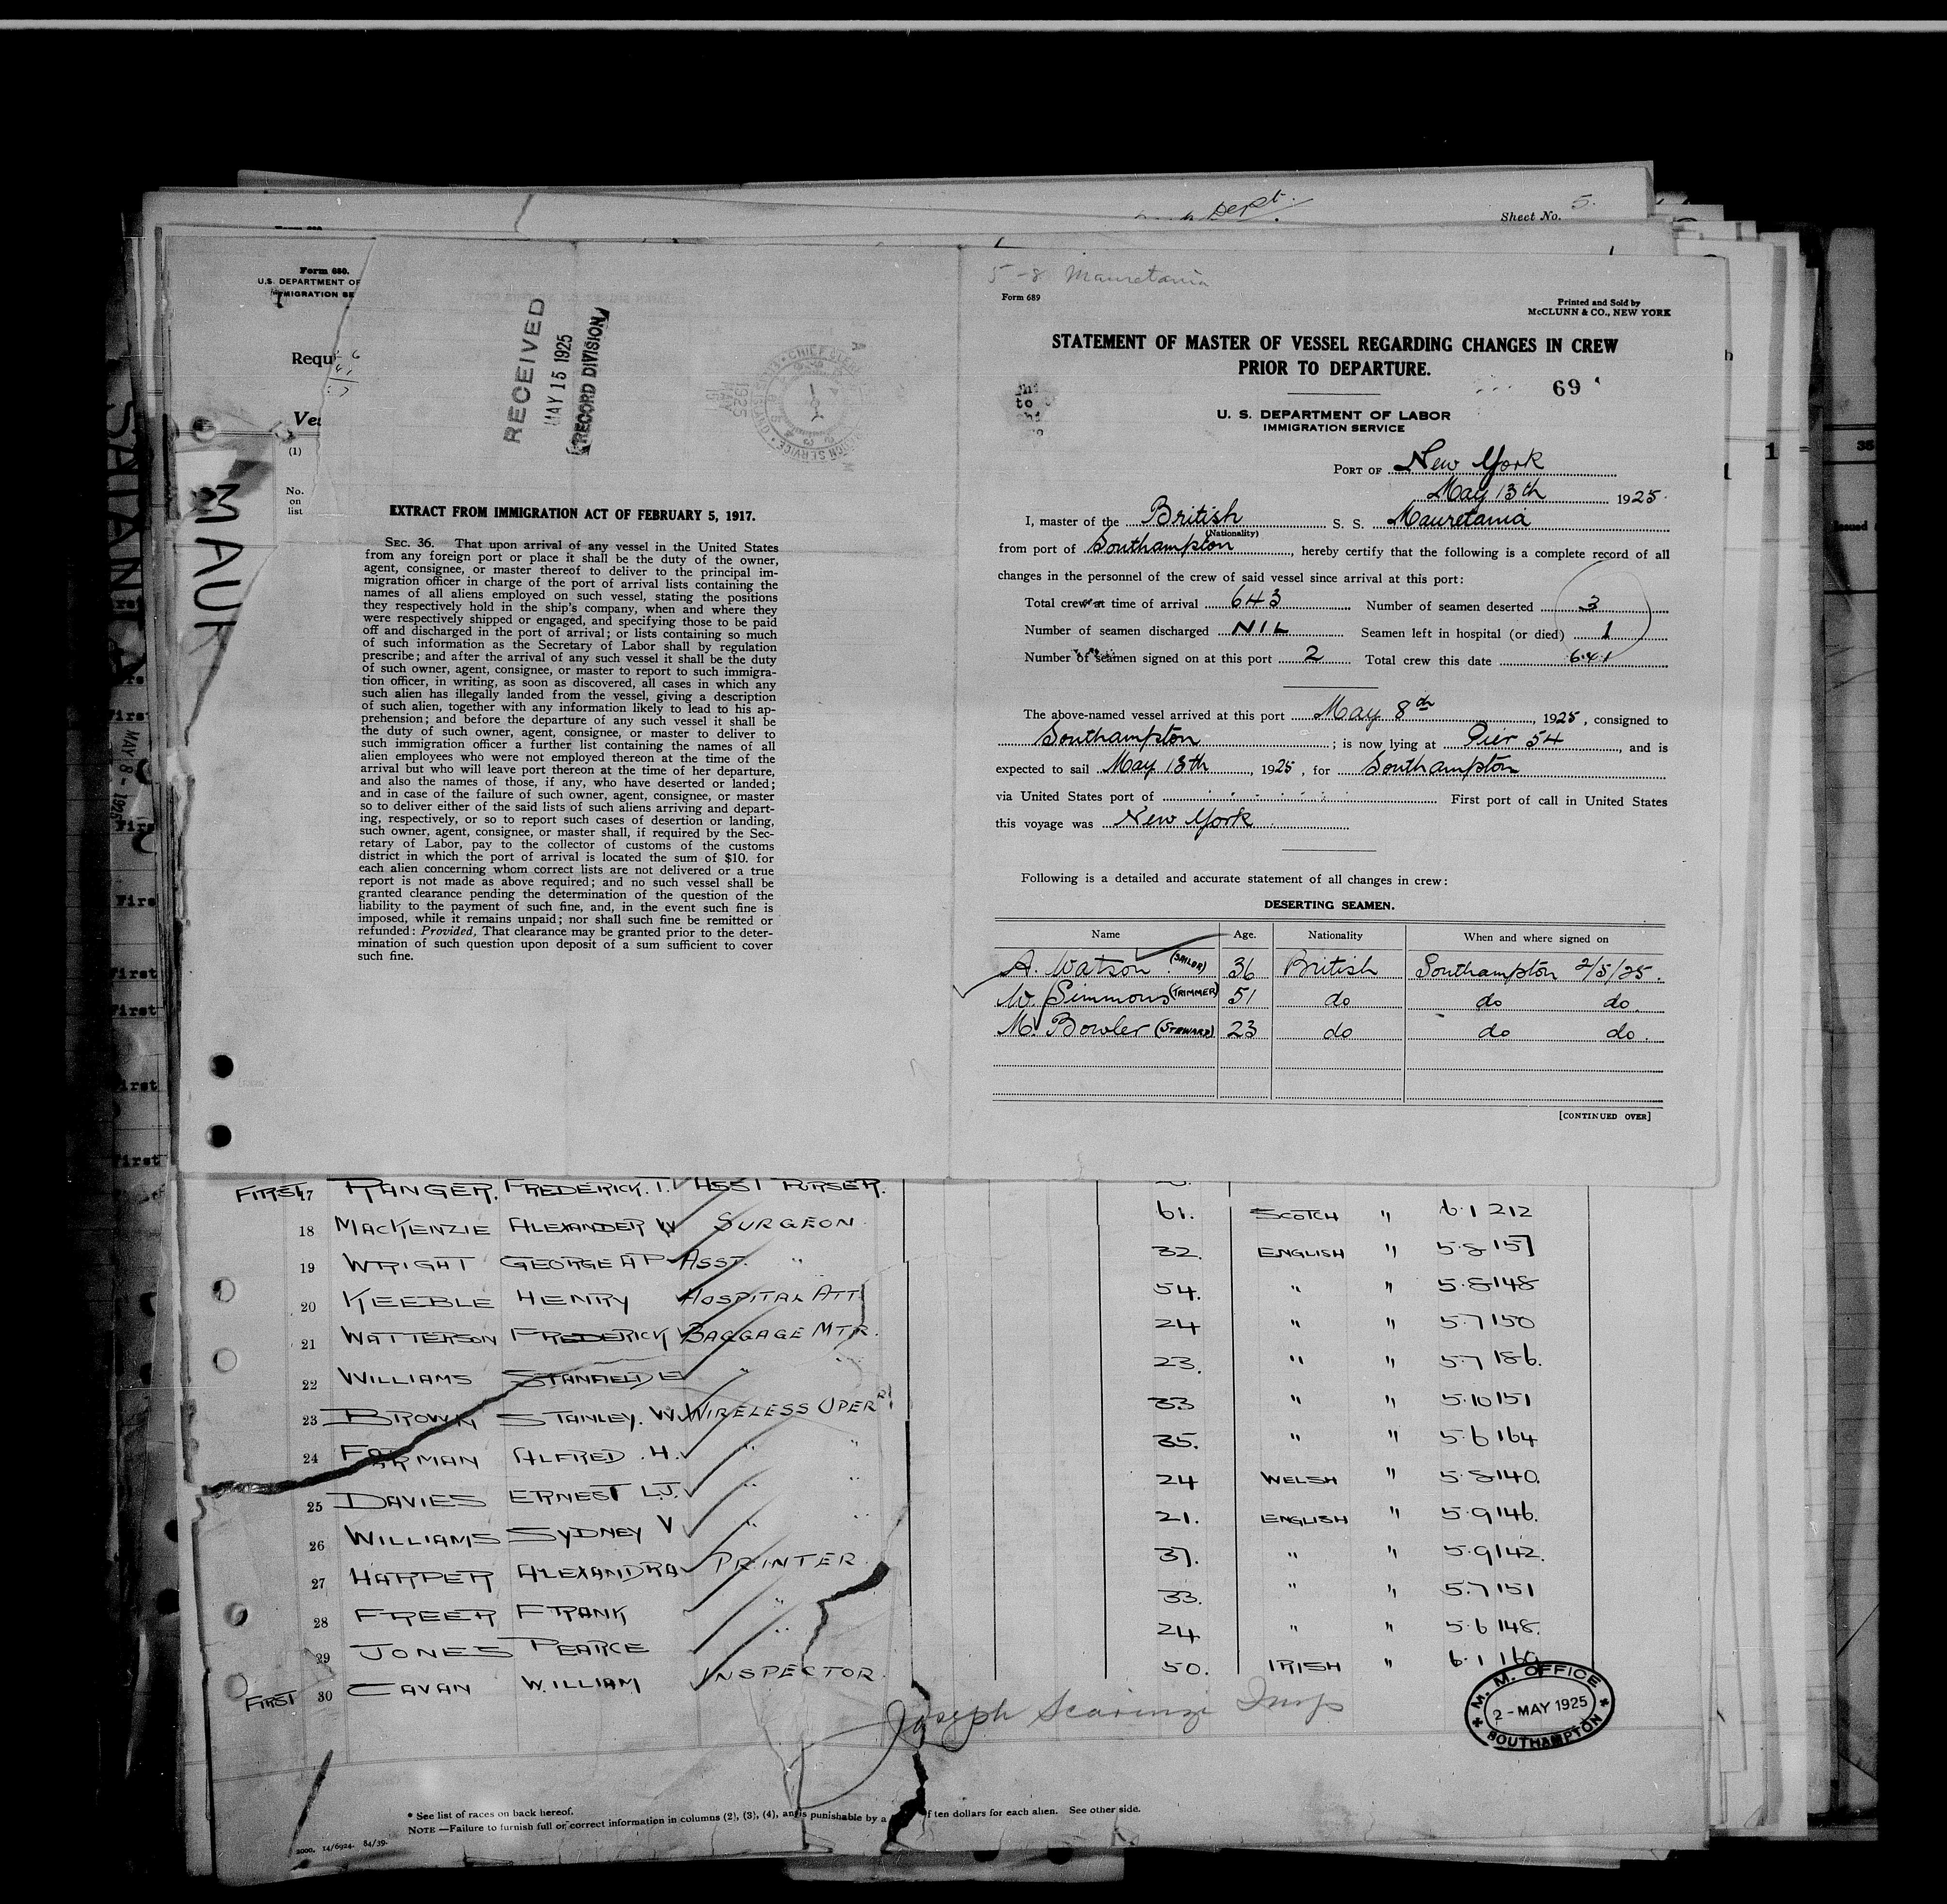 Dept.
Sheet No. 5.
Form 680.
U.S. DEPARTMENT OF
IMMIGRATION SE
Requ
Ve
(1)
No.
on
list
MAUR
RECEIVED
MAY 15 1925
RECORD DIVISION
EXTRACT FROM IMMIGRATION ACT OF FEBRUARY 5, 1917.
SEC. 36. That upon arrival of any vessel in the United States
from any foreign port or place it shall be the duty of the owner,
agent, consignee, or master thereof to deliver to the principal im-
migration officer in charge of the port of arrival lists containing the
names of all aliens employed on such vessel, stating the positions
they respectively hold in the ship's company, when and where they
were respectively shipped or engaged, and specifying those to be paid
off and discharged in the port of arrival; or lists containing so much
of such information as the Secretary of Labor shall by regulation
prescribe; and after the arrival of any such vessel it shall be the duty
of such owner, agent, consignee, or master to report to such immigra-
tion officer, in writing, as soon as discovered, all cases in which any
such alien has illegally landed from the vessel, giving a description
of such alien, together with any information likely to lead to his ap-
prehension; and before the departure of any such vessel it shall be
the duty of such owner, agent, consignee, or master to deliver to
such immigration officer a further list containing the names of all
alien employees who were not employed thereon at the time of the
arrival but who will leave port thereon at the time of her departure,
and also the names of those, if any, who have deserted or landed;
and in case of the failure of such owner, agent, consignee, or master
so to deliver either of the said lists of such aliens arriving and depart-
ing, respectively, or so to report such cases of desertion or landing,
such owner, agent, consignee, or master shall, if required by the Sec-
retary of Labor, pay to the collector of customs of the customs
district in which the port of arrival is located the sum of $10. for
each alien concerning whom correct lists are not delivered or a true
report is not made as above required; and no such vessel shall be
granted clearance pending the determination of the question of the
liability to the payment of such fine, and, in the event such fine is
imposed, while it remains unpaid; nor shall such fine be remitted or
refunded: Provided, That clearance may be granted prior to the deter-
mination of such question upon deposit of a sum sufficient to cover
such fine.
5-8 Mauretania
Form 689
Printed and Sold by
McCLUNN & CO., NEW YORK
STATEMENT OF MASTER OF VESSEL REGARDING CHANGES IN CREW
PRIOR TO DEPARTURE.
69
U. S. DEPARTMENT OF LABOR
IMMIGRATION SERVICE
PORT OF New York
May 13th 1925.
I, master of the British S. S. Mauretania
(Nationality)
from port of Southampton, hereby certify that the following is a complete record of all
changes in the personnel of the crew of said vessel since arrival at this port:
Total crew at time of arrival 643 Number of seamen deserted 3
Number of seamen discharged NIL Seamen left in hospital (or died) 1
Number of seamen signed on at this port 2 Total crew this date 641
The above-named vessel arrived at this port May 8th, 1925, consigned to
Southampton; is now lying at Pier 54, and is
expected to sail May 13th, 1925, for Southampton
via United States port of First port of call in United States
this voyage was New York
Following is a detailed and accurate statement of all changes in crew:
DESERTING SEAMEN.
Name Age. Nationality When and where signed on
A. Watson (SAILOR) 36 British Southampton 2/5/25.
W. Simmons (TRIMMER) 51 do do do.
M. Bowler (STEWARD) 23 do do do.
[CONTINUED OVER]
FIRST 17 RANGER. FREDERICK. T. ASST PURSER.
18 MACKENZIE ALEXANDER W SURGEON. 61. SCOTCH " 6.1 212
19 WRIGHT GEORGE A P ASST. " 32. ENGLISH " 5.8 157
20 KEEBLE HENRY HOSPITAL ATT 54. " " 5.8 148
21 WATTERSON FREDERICK BAGGAGE MTR. 24 " " 5.7 150
22 WILLIAMS STANFIELD E " " 23. " " 5.7 186.
23 BROWN STANLEY. W. WIRELESS OPER 33 " " 5.10 151
24 FORMAN ALFRED. H. " " 35. " " 5.6 164
25 DAVIES ERNEST L.J. " " 24 WELSH " 5.8 140.
26 WILLIAMS SYDNEY V " " 21. ENGLISH " 5.9 146.
27 HARPER ALEXANDRA PRINTER. 37. " " 5.9 142.
28 FREER FRANK " 33. " " 5.7 151
29 JONES PEARCE " 24 " " 5.6 148.
FIRST 30 CAVAN WILLIAM INSPECTOR. 50. IRISH " 6.1 160
Joseph Scarinzi Insp
M. M. OFFICE
2 - MAY 1925
SOUTHAMPTON
* See list of races on back hereof.
NOTE —Failure to furnish full or correct information in columns (2), (3), (4), and is punishable by a f ten dollars for each alien. See other side.
2000. 14/6924. 84/39.